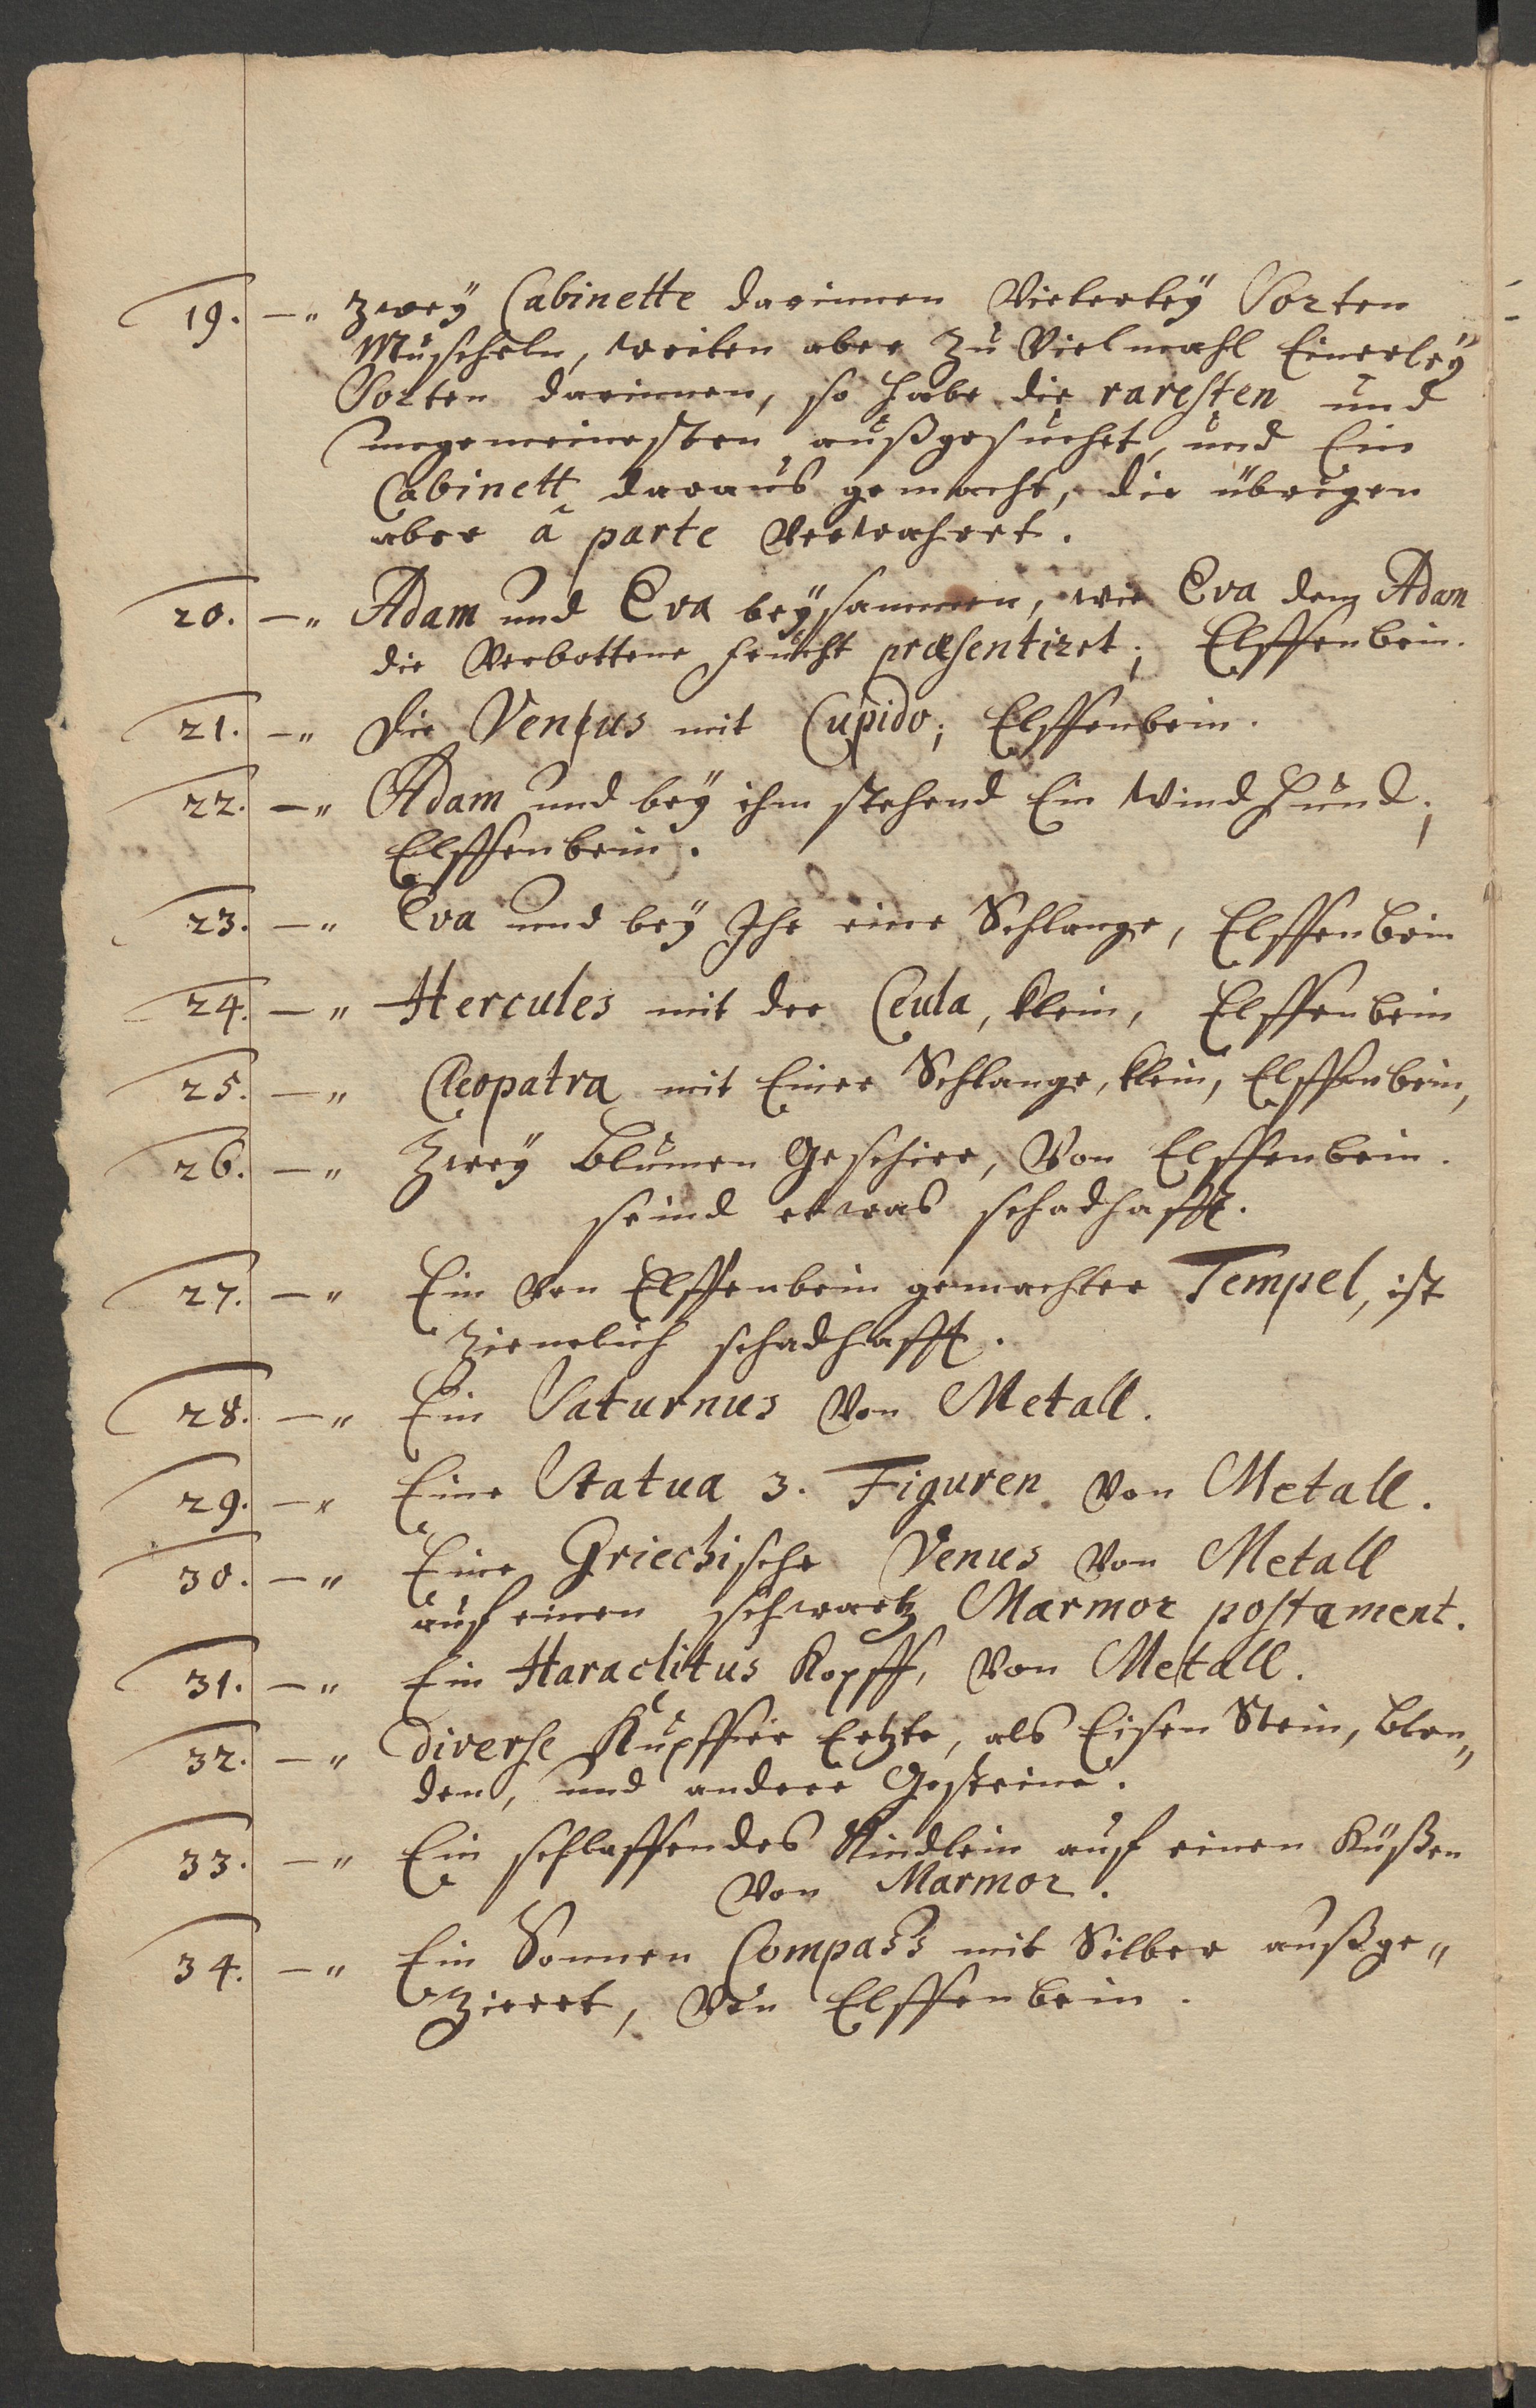 19. —„ Zweÿ Cabinette darinnen Vielerleÿ Sorten
Muscheln, weilen aber Zu Vielmahl Einerleÿ
Sorten darinnen, so habe die raresten und
ungemeinesten außgesuchet, und Ein
Cabinett daraus gemacht, die übrigen
aber à parte Verwahret.
20. —„ Adam und Eva beÿsammen, wie Eva dem Adam
die Verbottene frucht præsentiret; Elffenbein.
21. —„ Die Venus mit Cupido; Elffenbein.
22. —„ Adam und beÿ ihm stehend Ein Windhund;
Elffenbein.
23. —„ Eva und beÿ Ihr eine Schlange, Elffenbein
24. —„ Hercules mit der Ceula, klein, Elffenbein
25. —„ Cleopatra mit Einer Schlange, klein, Elffenbein,
26. —„ Zweÿ Blumen Geschirr, Von Elffenbein.
seind etwas schadhafft.
27. —„ Ein Von Elffenbein gemachter Tempel, ist
ziemlich schadhafft.
28. —„ Ein Saturnus Von Metall.
29. —„ Eine Statua 3. Figuren Von Metall.
30. —„ Eine Griechische Venus Von Metall
auf einen schwartz Marmor postament.
31. —„ Ein Haraclitus Kopff, Von Metall.
32. —„ Diverse Kupffer Ertzte, als Eisen Stein, Blen„
den, und andere Gesteine.
33. —„ Ein schlaffendes Kindlein auf einen Küßen
Von Marmor.
34. —„ Ein Sonnen Compass mit Silber außge„
zieret, Von Elffenbein.